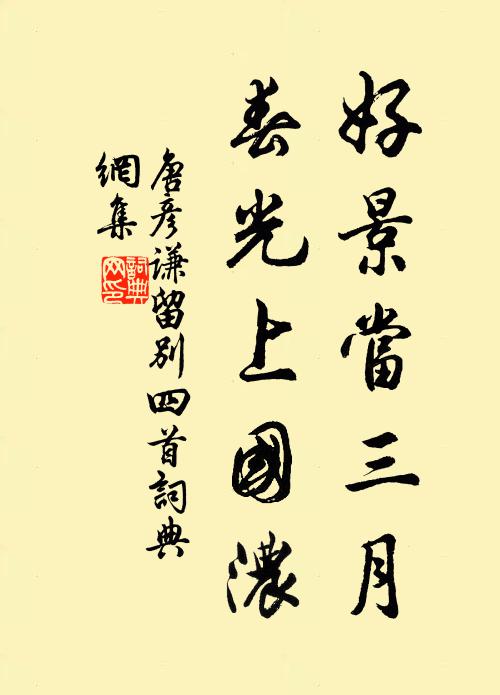 好景當三月
春光上國濃
唐彥謙留別四首詞典
網集
詞典
网印